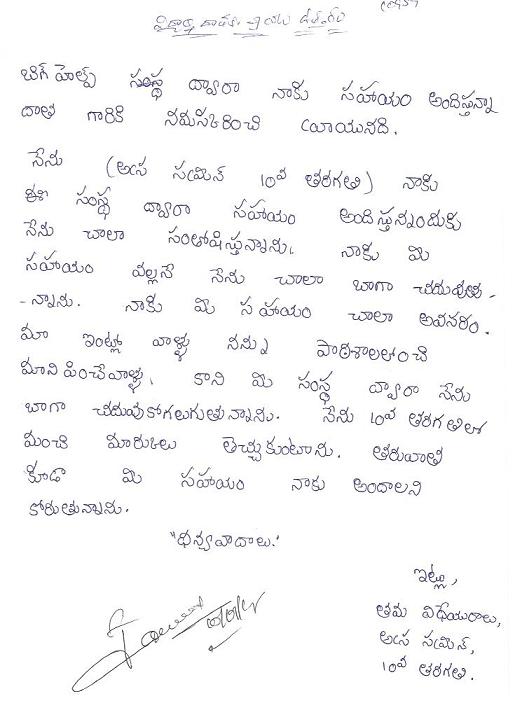 విద్యార్థి దాతకు వ్రాయు ఉత్తరం
బిగ్ హెల్ప్ సంస్థ ద్వారా నాకు సహాయం అందిస్తున్నా
దాత గారికి నమస్కరించి వ్రాయునది.
నేను (అస్త సమిన్ 10వ తరగతి) నాకు
ఈ సంస్థ ద్వారా సహాయం అందిస్తున్నందుకు
నేను చాలా సంతోషిస్తున్నాను. నాకు మి
సహాయం వల్లనే నేను చాలా బాగా చదువుతు-
-న్నాను. నాకు మి సహాయం చాలా అవసరం.
మా ఇంట్లో వాళ్ళు నన్ను పాఠశాలలోంచి
మానిపించేవాళ్ళు. కాని మి సంస్థ ద్వారా నేను
బాగా చదువుకోగలుగుతున్నాను. నేను 10వ తరగతిలో
మంచి మారుకులు తెచ్చుకుంటాను. తరువాత
కూడా మి సహాయం నాకు అందాలని
కోరుతున్నాను.
"ధన్యవాదాలు."
ఇట్లు,
తమ విధేయురాలు,
సమిన్,
10వ తరగతి.